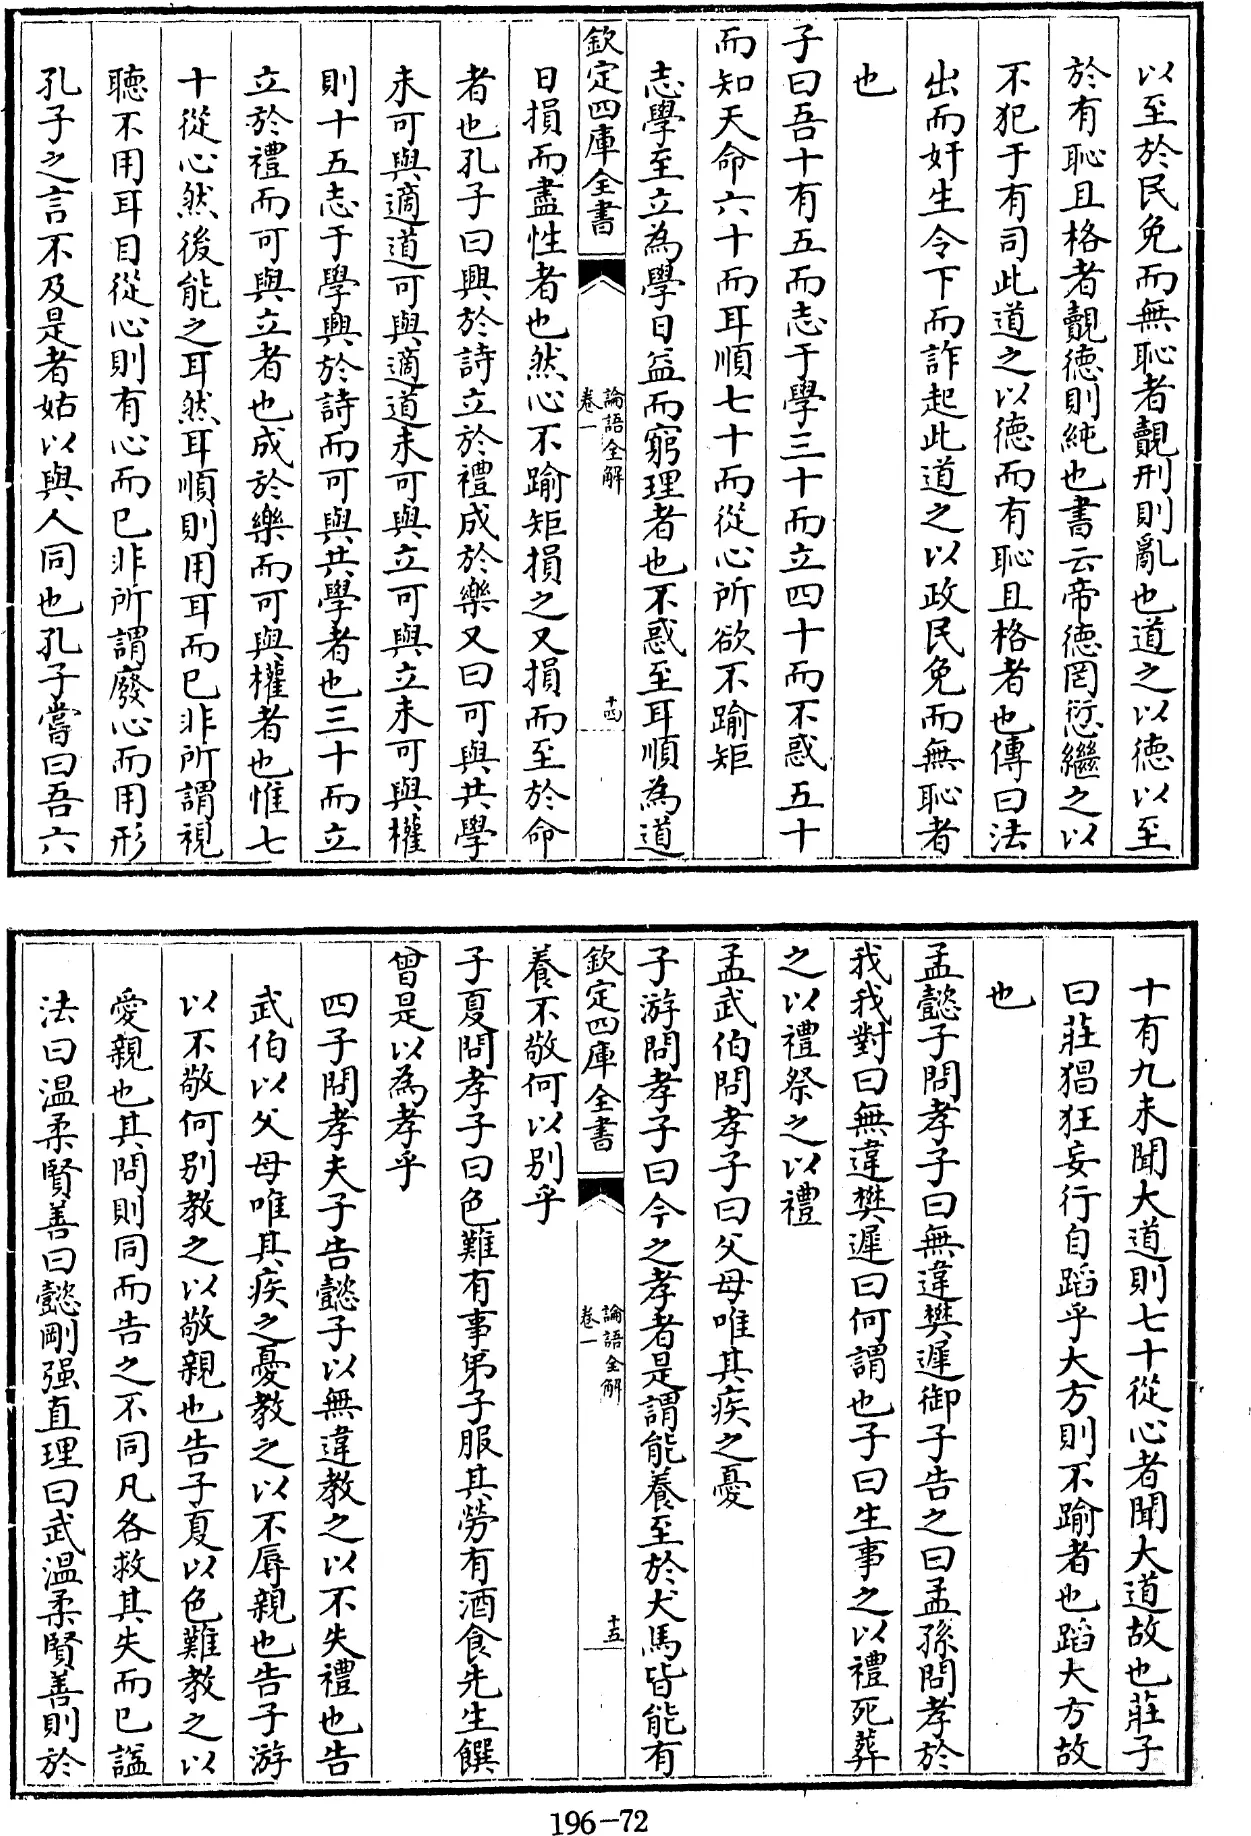 以至於民免而無恥者覿刑則亂也道之以徳以至
於有恥且格者覿徳則純也書云帝徳罔愆繼之以
不犯于有司此道之以徳而有恥且格者也傳曰法
出而奸生令下而詐起此道之以政民免而無恥者
也
子曰吾十有五而志于學三十而立四十而不惑五十
而知天命六十而耳順七十而從心所欲不踰矩
志學至立為學日益而窮理者也不惑至耳順為道
欽定四庫全書
論語全解
卷一
十四
日損而盡性者也然心不踰矩損之又損而至於命
者也孔子曰興於詩立於禮成於樂又曰可與共學
未可與適道可與適道未可與立可與立未可與權
則十五志于學興於詩而可與共學者也三十而立
立於禮而可與立者也成於樂而可與權者也惟七
十從心然後能之耳然耳順則用耳而已非所謂視
聽不用耳目從心則有心而已非所謂廢心而用形
孔子之言不及是者姑以與人同也孔子嘗曰吾六
十有九未聞大道則七十從心者聞大道故也莊子
曰莊猖狂妄行自蹈乎大方則不踰者也蹈大方故
也
孟懿子問孝子曰無違樊遲御子告之曰孟孫問孝於
我我對曰無違樊遲曰何謂也子曰生事之以禮死葬
之以禮祭之以禮
孟武伯問孝子曰父母唯其疾之憂
子游問孝子曰今之孝者是謂能養至於犬馬皆能有
欽定四庫全書
論語全解
卷一
十五
養不敬何以别乎
子夏問孝子曰色難有事弟子服其勞有酒食先生饌
曾是以為孝乎
四子問孝夫子告懿子以無違教之以不失禮也告
武伯以父母唯其疾之憂教之以不辱親也告子游
以不敬何别教之以敬親也告子夏以色難教之以
愛親也其問則同而告之不同凡各救其失而已諡
法曰温柔賢善曰懿剛强直理曰武温柔賢善則於
196-72